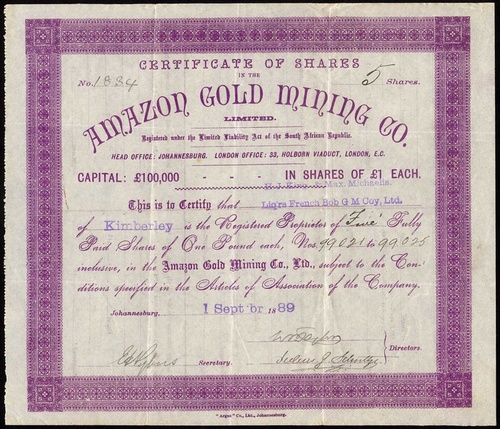 CERTIFICATE OF SHARES
IN THE
No. 1884
5 Shares.
AMAZON GOLD MINING CO.
LIMITED.
Registered under the Limited Liability Act of the South African Republic.
HEAD OFFICE: JOHANNESBURG. LONDON OFFICE: 33, HOLBORN VIADUCT, LONDON, E.C.
CAPITAL: £100,000 - - - IN SHARES OF £1 EACH.
Max. Michaelis.
This is to Certify that Liqrs French Bob G M Coy, Ltd.
of Kimberley is the Registered Proprietor of Five Fully
Paid Shares of One Pound each, Nos. 99021 to 99025
inclusive, in the Amazon Gold Mining Co., Ltd., subject to the Con-
ditions specified in the Articles of Association of the Company.
Johannesburg, 1 Septbr 1889
Directors.
Secretary.
"Argus" Co., Ltd., Johannesburg.